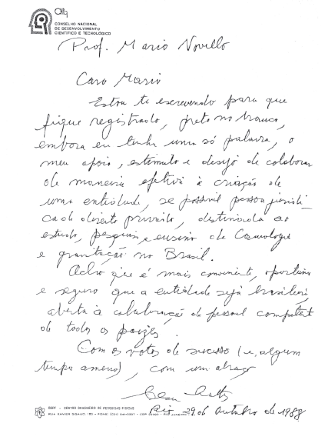 CONSELHO NACIONAL
DE DESENVOLVIMENTO
CIENTÍFICO E TECNOLÓGICO
Prof. Mario Novello
Caro Mario
Estou te escrevendo para que
fique registrado, preto no branco,
embora eu tenha uma só palavra, o
meu apoio, estímulo e desejo de colaborar
de maneira efetiva à criação de
uma entidade, se possível pessoa jurídi-
ca de direito privado, destinada ao
estudo, pesquisa e ensino de Cosmologia
e gravitação no Brasil.
Acho que é mais conveniente, oportuno
e seguro que a entidade seja brasileira,
aberta à colaboração de pessoal competente
de todos os países.
Com os votos de sucesso (e, algum
tempo ameno), com um abraço
Rio, 29 de outubro de 1988
CBPF - CENTRO BRASILEIRO DE PESQUISAS FÍSICAS